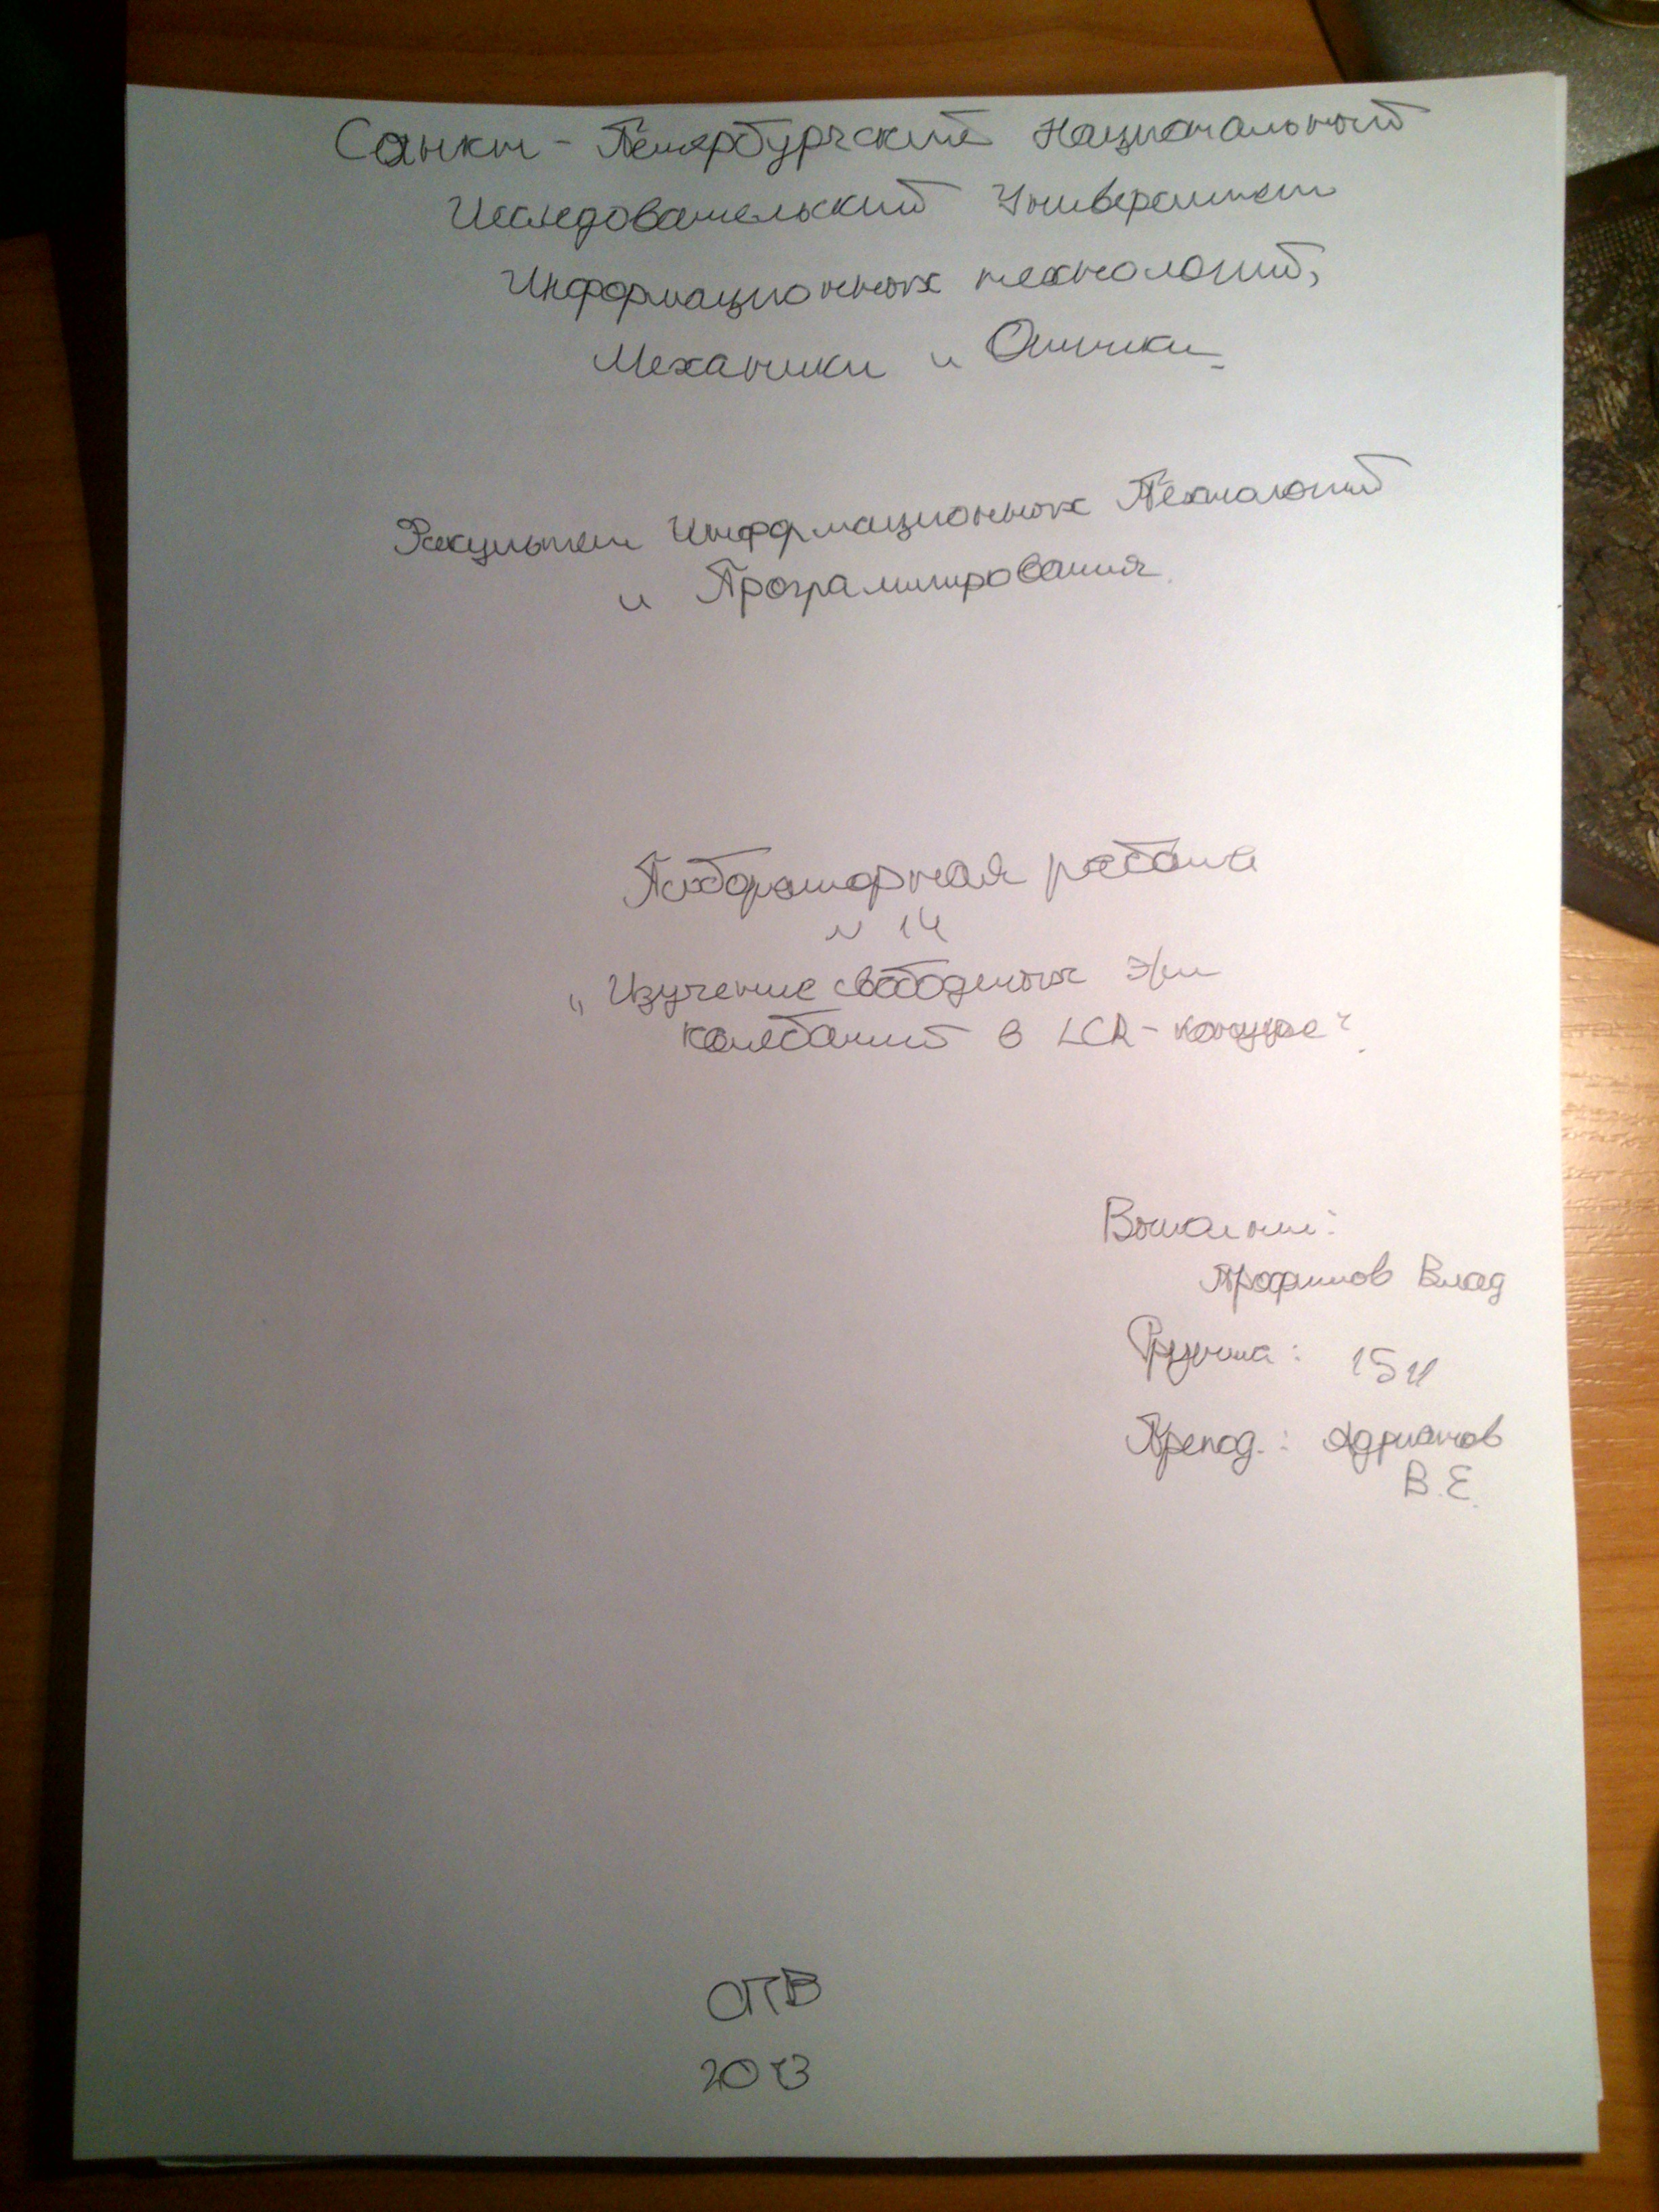 Санкт-Петербургский Национальный
Исследовательский Университет
Информационных технологий,
Механики и Оптики
Факультет Информационных Технологий
и Программирования
Лабораторная работа
N 14
„Изучение свободных э/м
колебаний в LCR-контуре"
Выполнил:
Трофимов Влад
Группа: 1511
Препод.: Адрианов
В.Е.
СПВ
2013